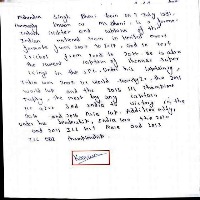 Mahendra Singh Dhoni born on 7 July 1981.
Commonly known as Ms dhoni, is a former
cricketer and captain of the
Indian national team in limited overs
formats from 2007 to 2017, and in Test
cricket from 2008 to 2014. He is also
the current captain of Chennai Super
Kings in the IPL. Under his captaincy,
India won 2007 ICC World Twenty20, the 2011
World Cup and the 2013 ICC Champions
Trophy, the most by any captain
and India to victory in the
2010 and 2016 Asia Cup.
under his leadership, India won the 2010
and 2011 ICC Test Mace and 2013
ICC ODI Championship.